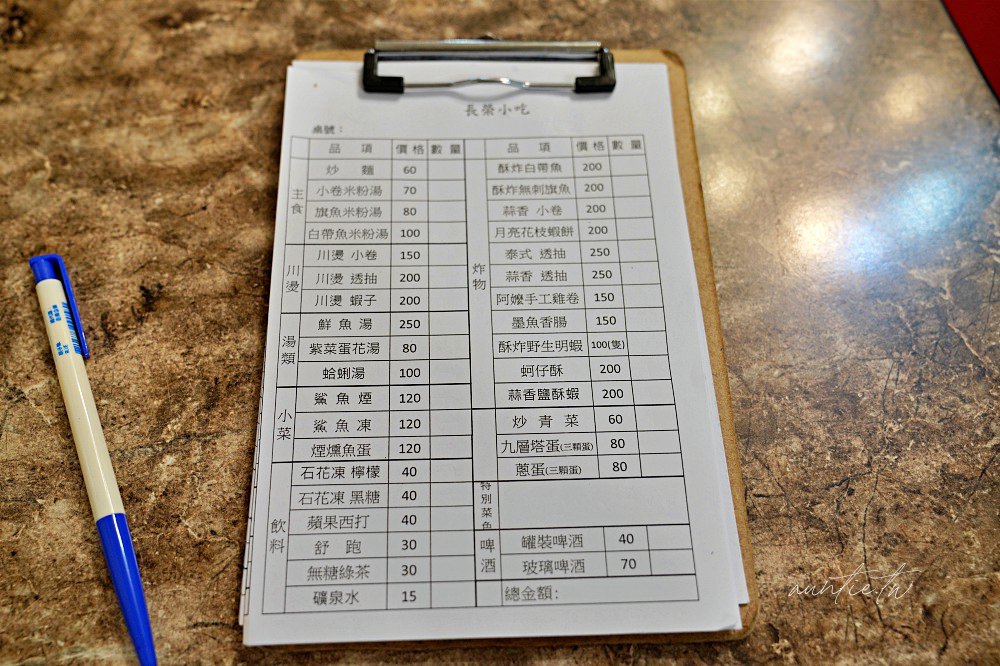 長榮小吃
桌號：
品 項 價格 數量
主食
炒 麵 60
小卷米粉湯 70
旗魚米粉湯 80
白帶魚米粉湯 100
川燙
川燙 小卷 150
川燙 透抽 200
川燙 蝦子 200
湯類
鮮魚湯 250
紫菜蛋花湯 80
蛤蜊湯 100
小菜
鯊魚煙 120
鯊魚凍 120
煙燻魚蛋 120
飲料
石花凍 檸檬 40
石花凍 黑糖 40
蘋果西打 40
舒 跑 30
無糖綠茶 30
礦泉水 15
品 項 價格 數量
炸物
酥炸白帶魚 200
酥炸無刺旗魚 200
蒜香 小卷 200
月亮花枝蝦餅 200
泰式 透抽 250
蒜香 透抽 250
阿嬤手工雞卷 150
墨魚香腸 150
酥炸野生明蝦 100(隻)
蚵仔酥 200
蒜香鹽酥蝦 200
炒青菜 60
九層塔蛋(三顆蛋) 80
蔥蛋(三顆蛋) 80
特別菜色
啤酒
罐裝啤酒 40
玻璃啤酒 70
總金額：
auntie.tw